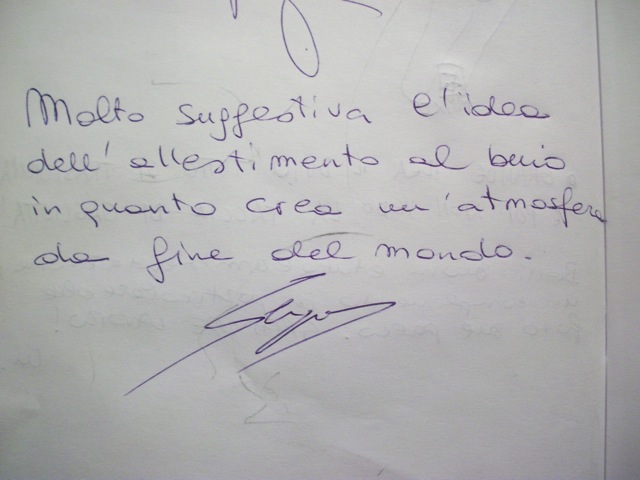 Molto suggestiva e l'idea
dell'allestimento al buio
in quanto crea un'atmosfera
da fine del mondo.